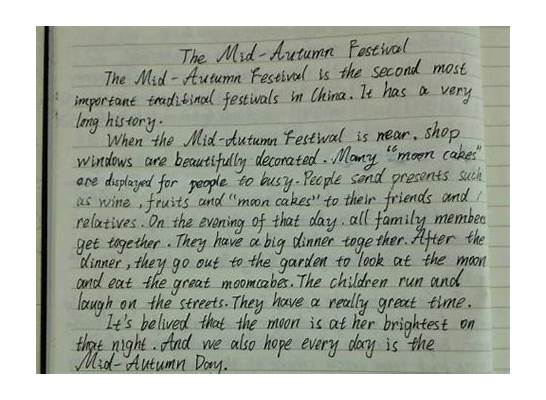 The Mid-Autumn Festival
The Mid-Autumn Festival is the second most
important tradifinal festivals in China. It has a very
long history.
When the Mid-Autumn Festival is near. shop
windows are beautifully decorated. Many "moon cakes"
are displayed for people to busy. People send presents such
as wine, fruits and "moon cakes" to their friends and
relatives. On the evening of that day. all family member
get together. They have a big dinner together. After the
dinner, they go out to the garden to look at the moon
and eat the great moomcabes. The children run and
laugh on the streets. They have a really great time.
It's belived that the moon is at her brightest on
that night. And we also hope every day is the
Mid-Autumn Day.